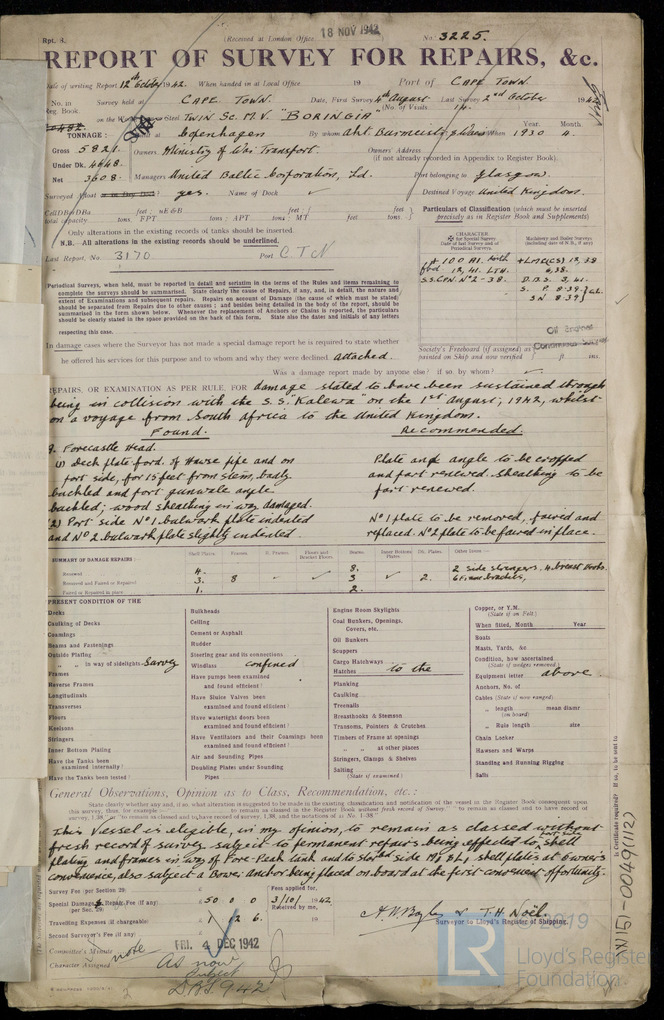 Rpt. 8.
(Received at London Office
18 NOV 1942
No. 3225.
REPORT OF SURVEY FOR REPAIRS, &c.
Date of writing Report 12th October 1942. When handed in at Local Office 19 Port of CAPE TOWN.
No. in Reg. Book. Survey held at CAPE TOWN. Date, First Survey 4th August Last Survey 2nd October 1942
(No. of Visits 14.
on the Steel TWIN Sc. M.V. "BORINGIA"
TONNAGE:
Built at Copenhagen By whom Akt. Burmeister & Wain When 1930 Year. Month 4.
Gross 5821. Owners Ministry of War Transport. Owners' Address
(if not already recorded in Appendix to Register Book).
Under Dk. 4648.
Net 3608. Managers United Baltic Corporation, Ld. Port belonging to Glasgow.
Surveyed Afloat yes. Name of Dock Destined Voyage United Kingdom.
Only alterations in the existing records of tanks should be inserted.
N.B.—All alterations in the existing records should be underlined.
Last Report, No. 3170 Port C.T.N
Particulars of Classification (which must be inserted precisely as in Register Book and Supplements)
CHARACTER.
for Special Survey
Date of last Survey and of Periodical Surveys.
Machinery and Boiler Surveys
(including dates of N.B., if any)
+100 A1. with fbd
12, 41. LTH.
S.S. CON. No 2 - 38.
+LMC(CS) 12, 38
6,38.
D.B.S. 3, 41.
S. P. 8-39
S N 8-39 } CL.
Oil Engines
Continuous Survey
Society's Freeboard (if assigned) as painted on Ship and now verified ft ins.
Periodical Surveys, when held, must be reported in detail and seriatim in the terms of the Rules and items remaining to
complete the surveys should be summarised. State clearly the cause of Repairs, if any, and, in detail, the nature and
extent of Examinations and subsequent repairs. Repairs on account of Damage (the cause of which must be stated)
should be separated from Repairs due to other causes; and besides being detailed in the body of the report, should be
summarised in the form shown below. Whenever the replacement of Anchors or Chains is reported, the particulars
should be clearly stated in the space provided on the back of this form. State also the dates and initials of any letters
respecting this case.
In damage cases where the Surveyor has not made a special damage report he is required to state whether
he offered his services for this purpose and to whom and why they were declined. attached.
Was a damage report made by anyone else? if so, by whom?
REPAIRS, OR EXAMINATION AS PER RULE, FOR damage stated to have been sustained through
being in collision with the S.S. "Kalewa" on the 1st August, 1942, whilst
on a voyage from South Africa to the United Kingdom.
Found. Recommended.
Forecastle Head.
(1) Deck plate ford. of Hawse pipe and on
port side, for 15 feet from stem, badly
buckled and port gunwale angle
buckled; wood sheathing in way damaged.
Plate and angle to be cropped
and part renewed. Sheathing to be
part renewed.
(2) Port side No 1. bulwark plate indented
and No 2. bulwark plate slightly indented.
No 1 plate to be removed, faired and
replaced. No 2 plate to be faired in place.
SUMMARY OF DAMAGE REPAIRS: Shell Plates. Frames. R. Frames. Floors and Bracket Floors. Beams. Inner Bottom Plates. Dk. Plates. Other Items:—
Renewed 4. 8. 2 side stringers. 4 breast hooks.
Removed and Faired or Repaired 3. 8 3 2. 6 Frame brackets,
Faired or Repaired in place 1. 2.
PRESENT CONDITION OF THE
Decks
Caulking of Decks
Coamings
Beams and Fastenings
Outside Plating
" " in way of sidelights Survey
Frames
Reverse Frames
Longitudinals
Transverses
Floors
Keelsons
Stringers
Inner Bottom Plating
Have the Tanks been examined internally?
Have the Tanks been tested?
Bulkheads
Ceiling
Cement or Asphalt
Rudder
Steering gear and its connections
Windlass confined
Have pumps been examined and found efficient?
Have Sluice Valves been examined and found efficient?
Have watertight doors been examined and found efficient?
Have Ventilators and their Coamings been examined and found efficient?
Air and Sounding Pipes
Doubling Plates under Sounding Pipes
Engine Room Skylights
Coal Bunkers, Openings, Covers, etc.
Oil Bunkers
Scuppers
Cargo Hatchways
Hatches to the
Planking
Caulking
Treenails
Breasthooks & Stemson
Transoms, Pointers & Crutches
Timbers of Frame at openings
" " at other places
Stringers, Clamps & Shelves
Salting
(State if examined.)
Copper, or Y.M.
(State if on Felt.)
When fitted, Month Year
Boats
Masts, Yards, &c.
Condition, how ascertained
(State if wedges removed)
Equipment letter above.
Anchors, No. of
Cables (State if now ranged)
" length mean diamr
(on board)
" Rule length size
Chain Locker
Hawsers and Warps
Standing and Running Rigging
Sails
General Observations, Opinion as to Class, Recommendation, etc.:
This Vessel is eligible, in my opinion, to remain as classed without
fresh record of survey subject to permanent repairs being effected to shell
plating and frames in way of Fore-Peak tank and to starbd side shell plates at Owner's
convenience, also subject a Bower anchor being placed on board at the first convenient opportunity.
Survey Fee (per Section 29)
Special Damage & Repair Fee (if any) (per Sec. 29) 50 0 0
Travelling Expenses (if chargeable) 1 2 6.
Second Surveyor's Fee (if any)
Fees applied for, 3/10/1942
Received by me, 19
A. W. Boyle & T. H. Noël.
Surveyor to Lloyd's Register of Shipping.
Committee's Minute note FRI. 4 DEC 1942
Character Assigned As now
Subject
DBS 9.42
LR
Lloyd's Register
Foundation
Is a Certificate required? If so, to be sent to